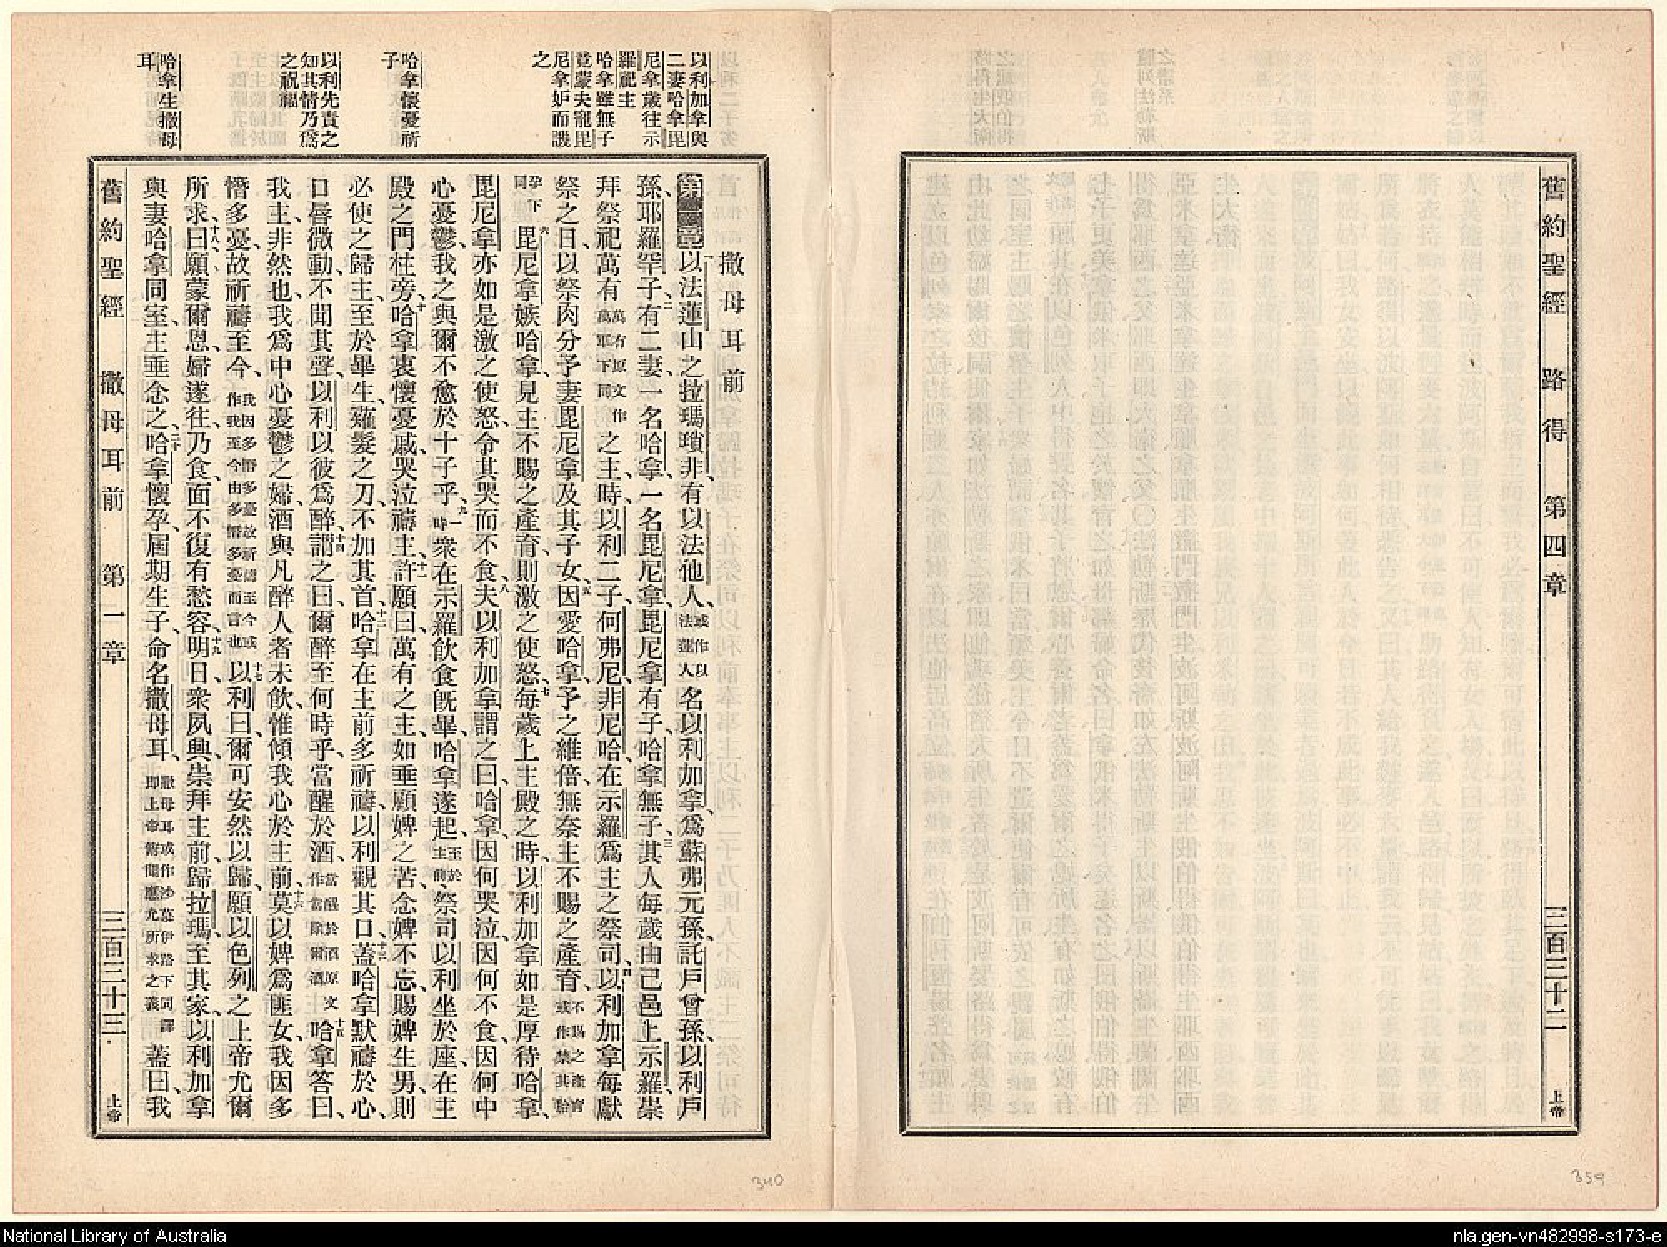 舊約聖經 路得 第四章 三百三十二 上帝
以利加拿與
二妻哈拿毘
尼拿歲往示
羅祀主
哈拿雖無子
竟蒙夫寵毘
尼拿妒而譏
之
哈拿懷憂祈
子
以利先責之
知其情乃爲
之祝福
哈拿生撒母
耳
撒母耳前
第一章一以法蓮山之拉瑪瑣非、有以法他人、或作以法蓮人名以利加拿、爲蘇弗元孫、託戶曾孫、以利戶
孫、耶羅罕子、二有二妻、一名哈拿、一名毘尼拿、毘尼拿有子、哈拿無子、三其人每歲由己邑上示羅、崇
拜祭祀萬有萬有原文作萬軍下同之主、時以利二子、何弗尼、非尼哈、在示羅爲主之祭司、四以利加拿每獻
祭之日、以祭肉分予妻毘尼拿、及其子女、五因愛哈拿、予之維倍、無奈主不賜之產育、不賜之產育或作禁其胎
孕下同六毘尼拿嫉哈拿、見主不賜之產育、則激之使怒、七每歲上主殿之時、以利加拿如是厚待哈拿、
毘尼拿亦如是激之使怒、令其哭而不食、八夫以利加拿謂之曰、哈拿、因何哭泣、因何不食、因何中
心憂鬱、我之與爾、不愈於十子乎、九一時衆在示羅飲食旣畢、哈拿遂起、至於主前祭司以利坐於座、在主
殿之門柱旁、十哈拿衷懷憂戚、哭泣禱主、十一許願曰、萬有之主、如垂顧婢之苦、念婢不忘、賜婢生男、則
必使之歸主、至於畢生、薙髮之刀、不加其首、十二哈拿在主前多祈禱、以利觀其口、十三蓋哈拿默禱於心、
口唇微動、不聞其聲、以利以彼爲醉、十四謂之曰、爾醉至何時乎、當醒於酒、當醒於酒原文作當除爾酒十五哈拿答曰、
我主、非然也、我爲中心憂鬱之婦、酒與凡醉人者未飲、惟傾我心於主前、十六莫以婢爲匪女、我因多
慴多憂、故祈禱至今、我因多慴多憂故祈禱至今或作我至今由多慴多憂而言也十七以利曰、爾可安然以歸、願以色列之上帝、允爾
所求、十八曰、願蒙爾恩、婦遂往、乃食、面不復有愁容、十九明日、衆夙興、崇拜主前、歸拉瑪、至其家、以利加拿
與妻哈拿同室、主垂念之、二十哈拿懷孕、屆期生子、命名撒母耳、撒母耳或作沙慕伊勒下同譯卽上帝俯聞應允所求之義蓋曰、我
舊約聖經 撒母耳前 第一章 三百三十三 上帝
340
359
National Library of Australia
nla.gen-vn482998-s173-e